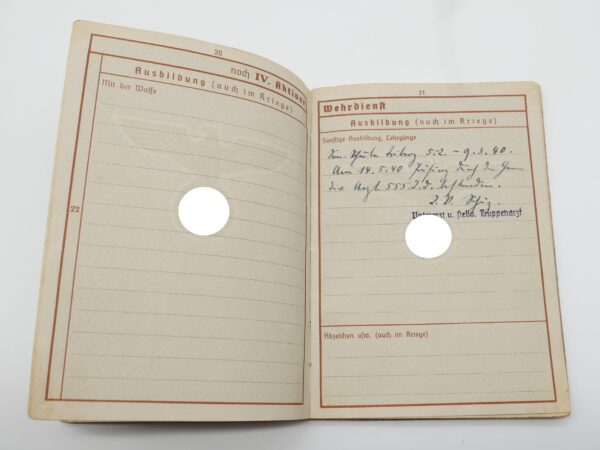 20
noch IV. Aktiver
Ausbildung (auch im Kriege)
Mit der Waffe
22
21
Wehrdienst
Ausbildung (auch im Kriege)
Sonstige Ausbildung, Lehrgänge
5.2. – 9.3.40.
Am 14.5.40 Prüfung durch den
Arzt 555 I.D. bestanden.
I.V.
Unterarzt u. stellv. Truppenarzt
Abzeichen usw. (auch im Kriege)